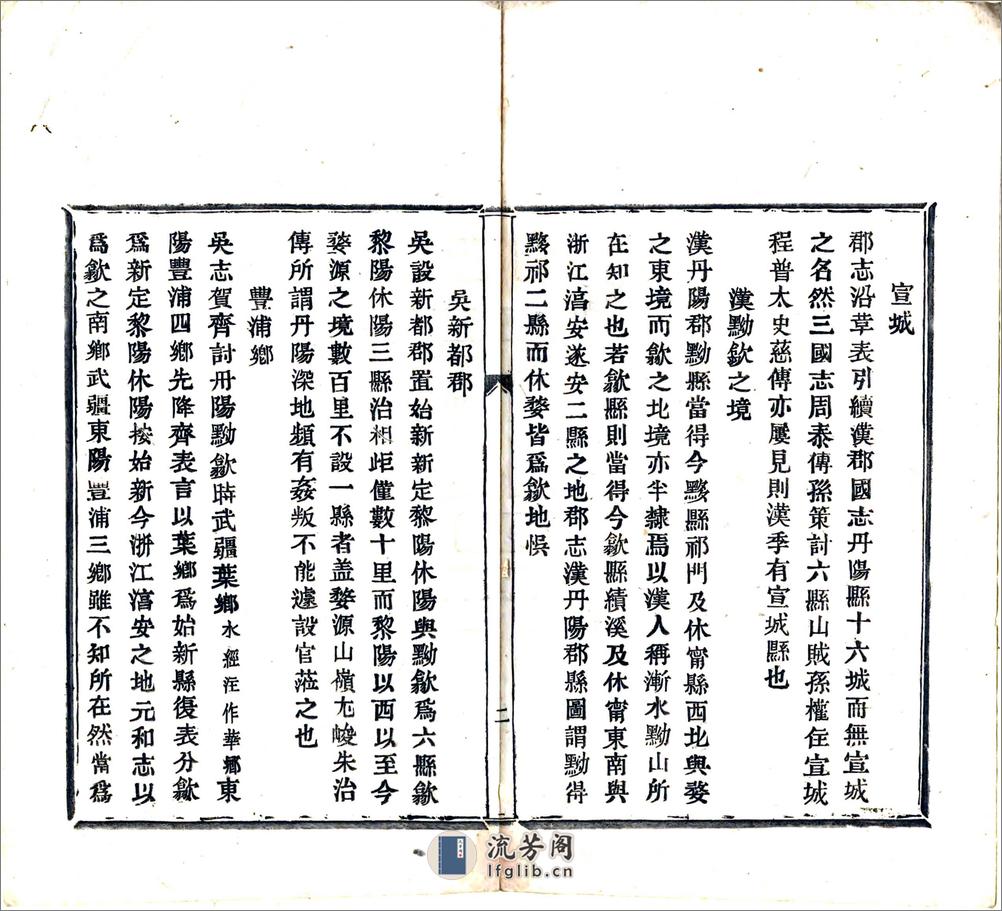 宣城
郡志沿革表引續漢郡國志丹陽縣十六城而無宣城
之名然三國志周泰傳孫策討六縣山賊孫權住宣城
程普太史慈傳亦屢見則漢季有宣城縣也
漢黝歙之境
漢丹陽郡黝縣當得今黟縣祁門及休甯縣西北與婺
之東境而歙之北境亦半隸焉以漢人稱漸水黝山所
在知之也若歙縣則當得今歙縣績溪及休甯東南與
浙江淳安遂安二縣之地郡志漢丹陽郡縣圖謂黝得
黟祁二縣而休婺皆爲歙地悞
吳新都郡
吳設新都郡置始新新定黎陽休陽與黝歙爲六縣歙
黎陽休陽三縣治相歫僅數十里而黎陽以西以至今
婺源之境數百里不設一縣者盖婺源山嶺尤峻朱治
傳所謂丹陽深地頻有姦叛不能遽設官蒞之也
豐浦鄉
吳志賀齊討丹陽黝歙時武彊葉鄉水經注作華鄉東
陽豐浦四鄉先降齊表言以葉鄉爲始新縣復表分歙
爲新定黎陽休陽按始新今浙江淳安之地元和志以
爲歙之南鄉武彊東陽豐浦三鄉雖不知所在然當爲
二
流芳阁
lfglib.cn